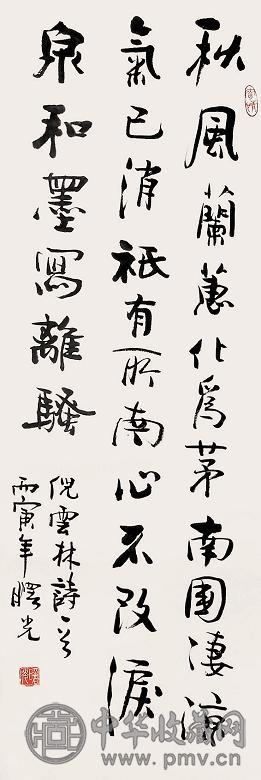 秋風蘭蕙化爲茅南國淒涼
氣已消祇有所南心不改淚
泉和墨寫離騷
倪雲林詩一首
丙寅年曙光
中华收藏网
www.pmv.cn